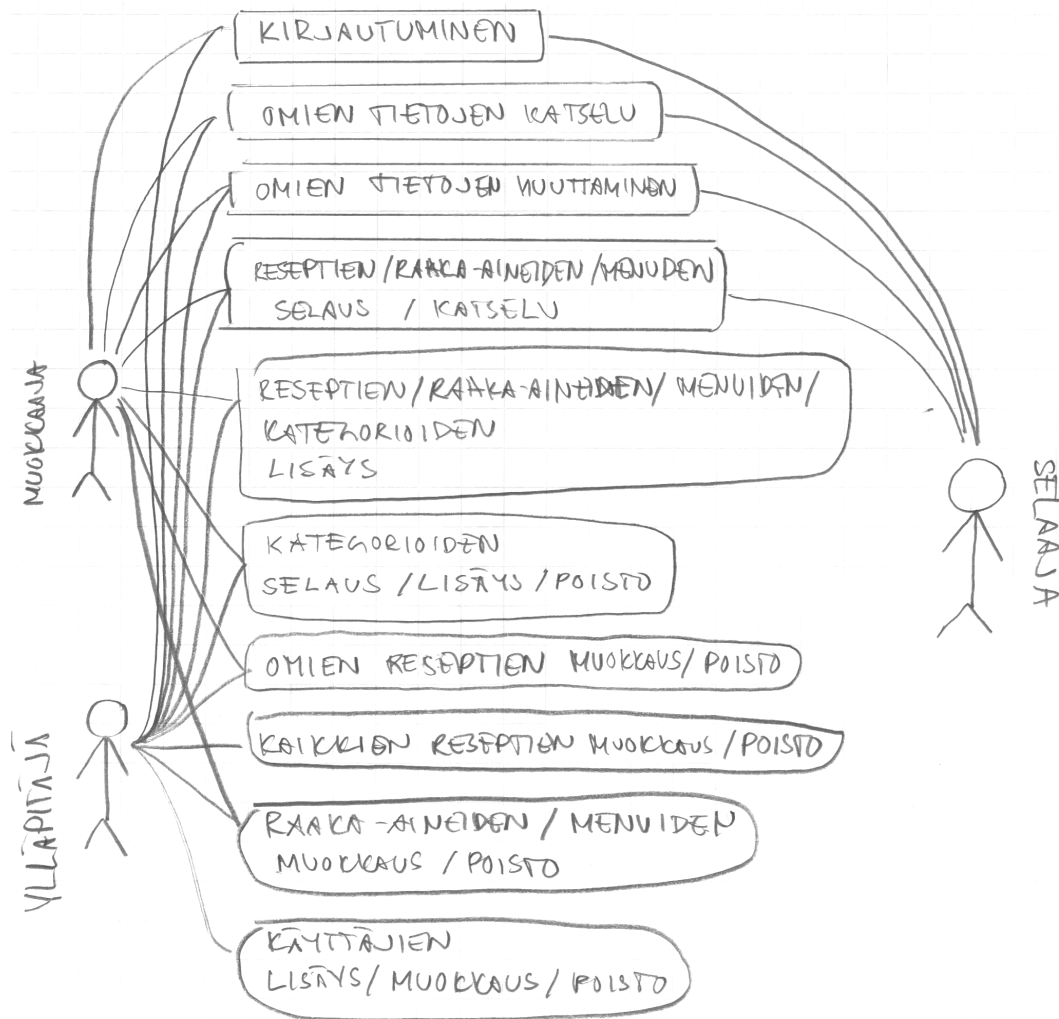 KIRJAUTUMINEN
OMIEN TIETOJEN KATSELU
OMIEN TIETOJEN MUUTTAMINEN
RESEPTIEN/RAAKA-AINEIDEN/MENUDEN
SELAUS / KATSELU
RESEPTIEN/RAAKA-AINEIDEN/MENUIDEN/
KATEGORIOIDEN
LISÄYS
KATEGORIOIDEN
SELAUS/LISÄYS/POISTO
OMIEN RESEPTIEN MUOKKAUS/POISTO
KAIKKIEN RESEPTIEN MUOKKAUS/POISTO
RAAKA-AINEIDEN/MENUIDEN
MUOKKAUS/POISTO
KÄYTTÄJIEN
LISÄYS/MUOKKAUS/POISTO
MUOKKAAJA
YLLÄPITÄJÄ
SELAAJA